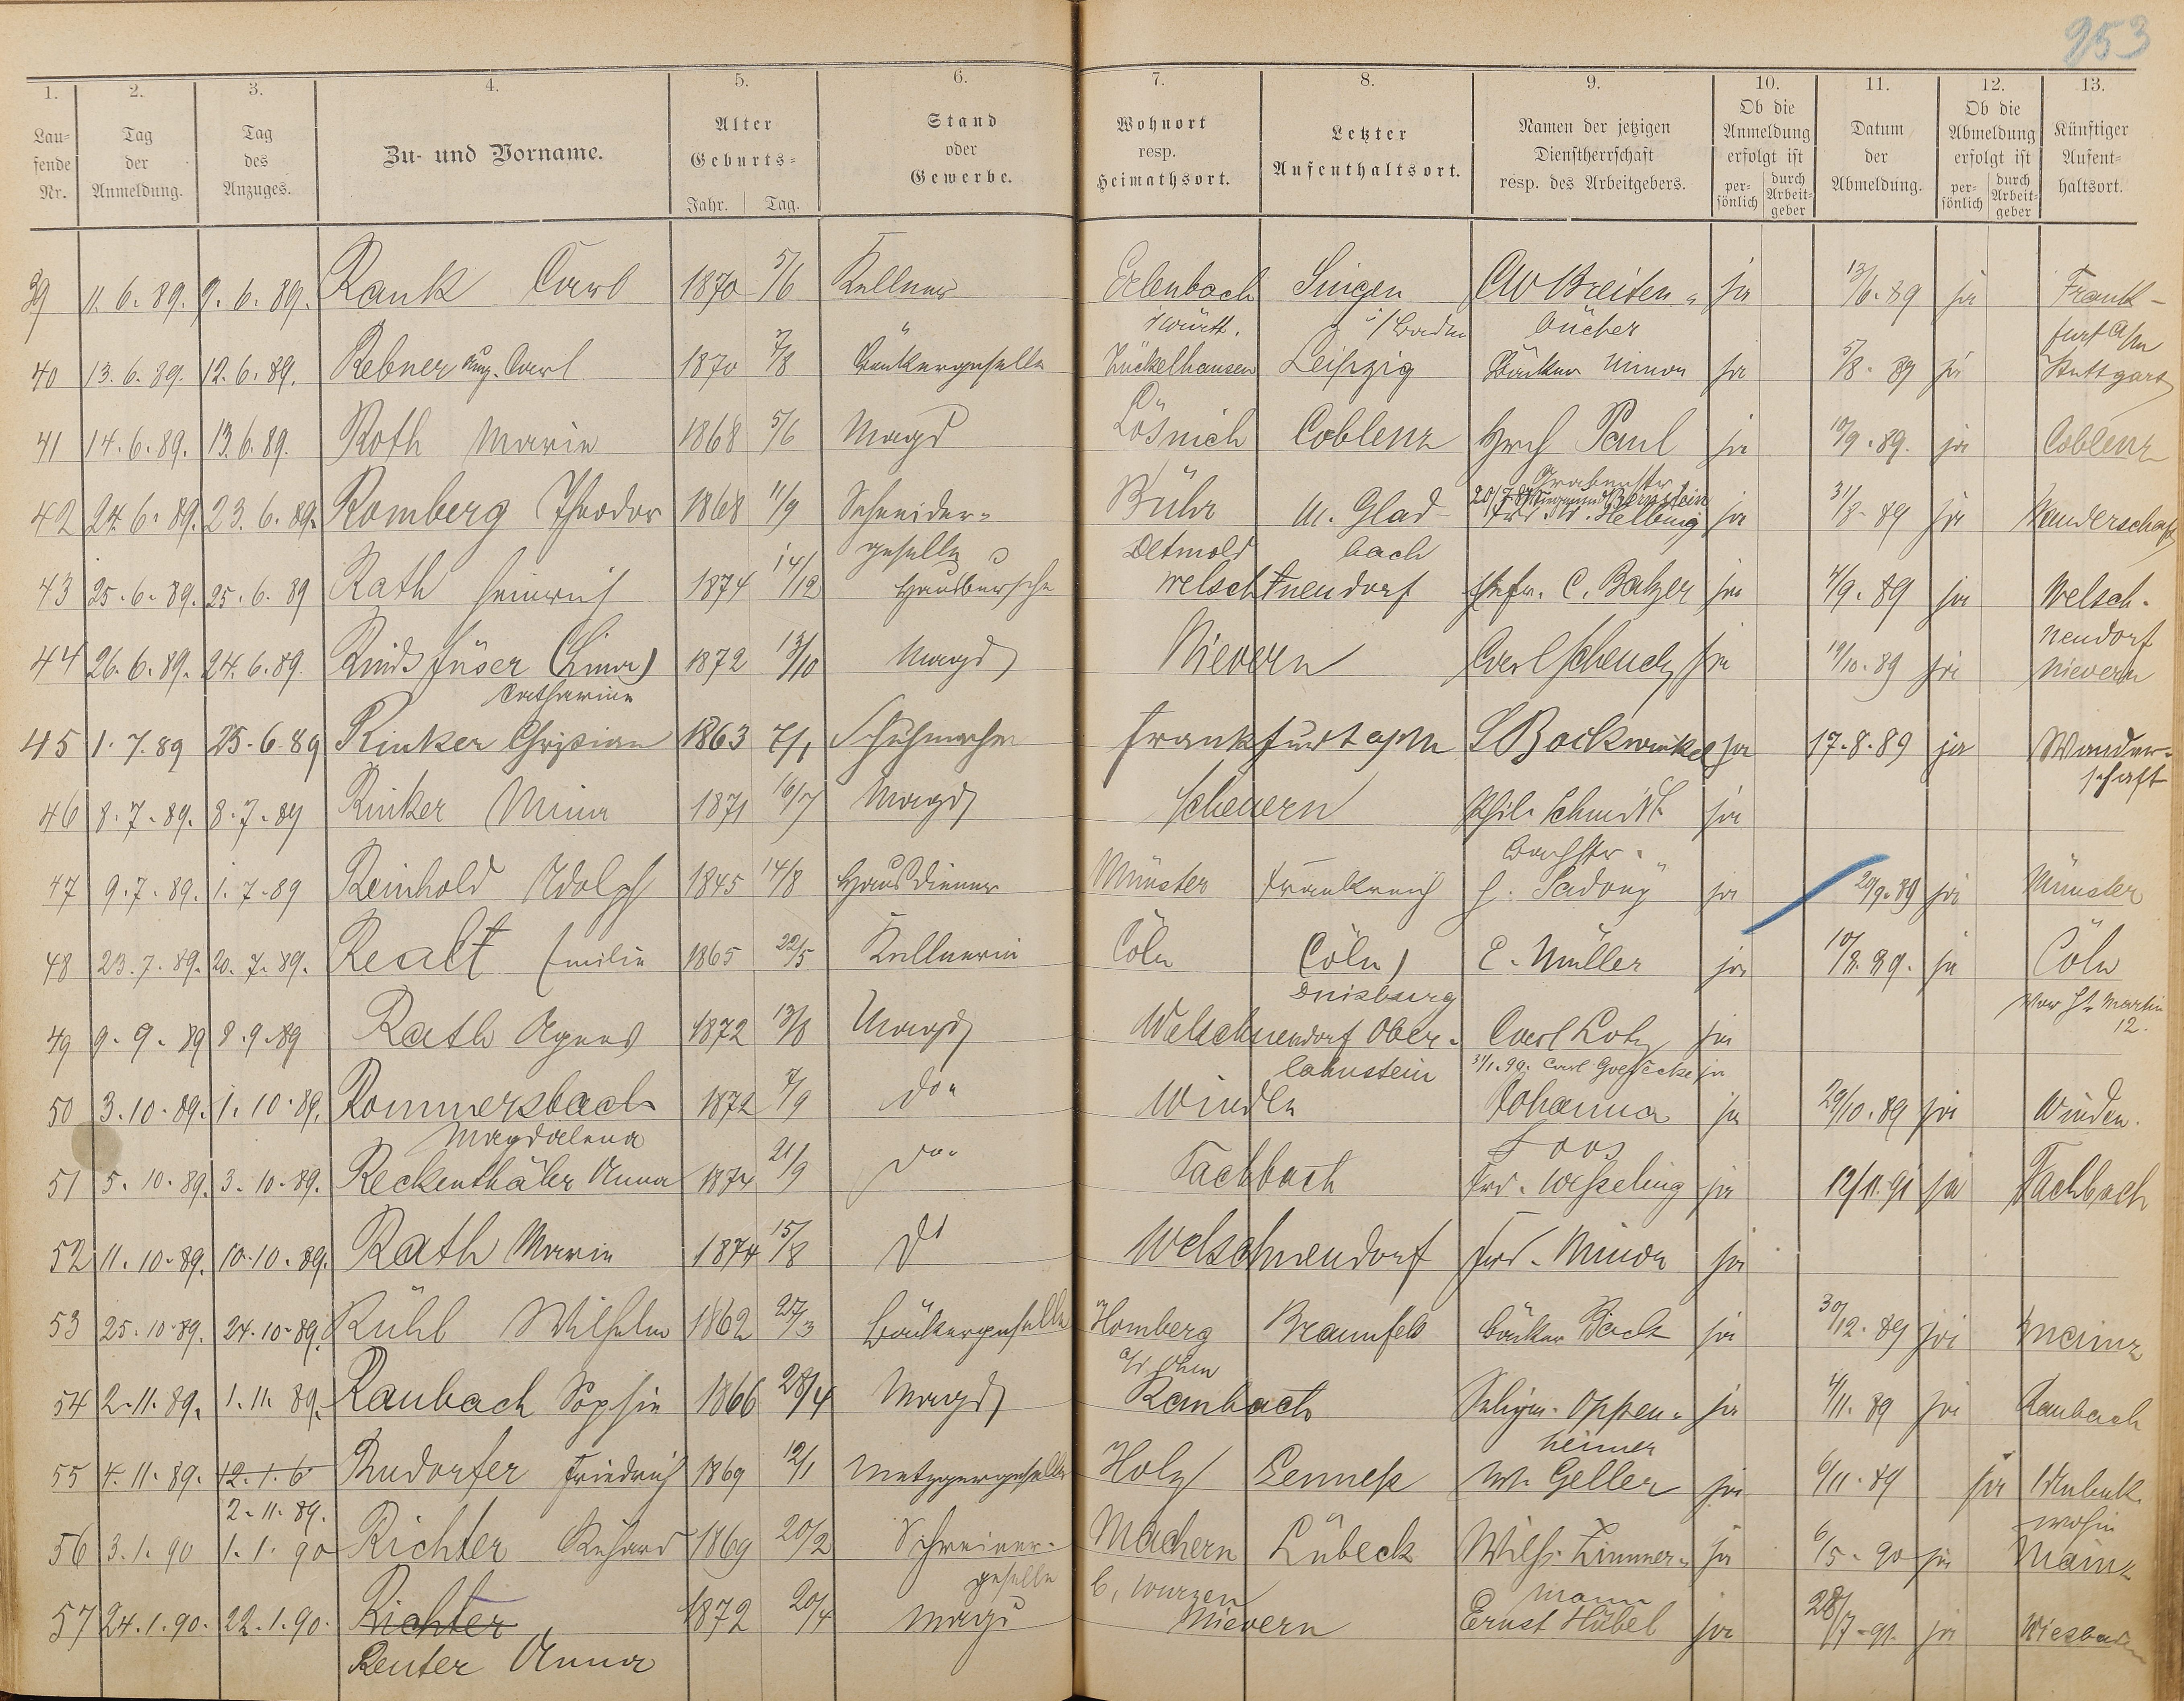 953
1. 2. 3. 4. 5. 6. 7. 8. 9. 10. 11. 12. 13.
Laufende Nr. Tag der Anmeldung. Tag des Anzuges. Zu- und Vorname. Alter Geburts- Jahr. Tag. Stand oder Gewerbe. Wohnort resp. Heimathsort. Letzter Aufenthaltsort. Namen der jetzigen Dienstherrschaft resp. des Arbeitgebers. Ob die Anmeldung erfolgt ist persönlich durch Arbeitgeber Datum der Abmeldung. Ob die Abmeldung erfolgt ist persönlich durch Arbeitgeber Künftiger Aufenthaltsort.
39 11. 6. 89. 9. 6. 89. Rank Carl 1870 5/6 Kellner Erlenbach Singen CW Breiten- ja 13/6. 89 ja Frank-
i/württ. i/Baden bücher furt a/m
40 13. 6. 89. 12. 6. 89. Rebner Aug. Carl 1870 7/8 Bäckergeselle Zückelhausen Leipzig Bäcker Minor ja 5/8. 89 ja Stuttgart
41 14. 6. 89. 13. 6. 89. Roth Marie 1868 5/6 Magd Lösnich Coblenz Hrch Paul ja 10/9. 89. ja Coblenz
Grabenstr.
20/7. 89 Bernstein
42 24. 6. 89. 23. 6. 89. Romberg Theodor 1868 11/9 Schneider- Bühr M. Glad Helbing ja 31/8. 89 ja Wanderschaft
geselle Detmold bach
43 25. 6. 89. 25. 6. 89 Rath Heinrich 1874 14/12 Hausbursche Welschneudorf C. Balzer ja 4/9. 89 ja Welsch-
neudorf
44 26. 6. 89. 24. 6. 89. Rindsfüser (Lina) 1872 13/10 Magd Nievern Carl Schenck ja 19/10. 89 ja Nievern
Catharine
45 1. 7. 89 25. 6. 89 Rinker Christian 1863 7/1 Schuhmacher Frankfurt a/m L Bockwinkel ja 17. 8. 89 ja Wander-
schaft
46 8. 7. 89. 8. 7. 89 Rinker Mina 1871 16/7 Magd Scheuern Phil. Schmidt ja
Bachstr.
47 9. 7. 89. 1. 7. 89 Reinhold Adolph 1845 14/8 Hausdiener Münster Frankreich H. Sadony ja 20/9. 89 ja Münster
48 23. 7. 89. 20. 7. 89. Realt Emilie 1865 22/5 Kellnerin Cöln Cöln) E. Müller ja 10/8. 89. ja Cöln
Duisburg Vor St. Martin 12.
49 9. 9. 89 8. 9. 89 Rath Agnes 1872 13/8 Magd Welschneudorf Ober- Carl Lotz ja
lahnstein 31/1. 90. Carl Goesecke ja
50 3. 10. 89. 1. 10. 89. Rommersbach 1872 7/9 do. Winden Johanna ja 29/10. 89 ja Winden.
Magdalena Loos
51 5. 10. 89. 3. 10. 89. Reckenthäler Anna 1874 21/9 do. Fachbach Frd. Wesseling ja 12/11. 91 ja Fachbach
52 11. 10. 89. 10. 10. 89. Rath Marie 1874 15/8 do Welschneudorf Frd. Minor ja
53 25. 10. 89. 24. 10. 89. Rühl Wilhelm 1862 27/3 Bäckergeselle Homberg Braunfels Bäcker Back ja 30/12. 89 ja Mainz
a/d Ohm
54 2. 11. 89. 1. 11. 89. Raubach Sophie 1866 28/4 Magd Raubach Seligm. Oppen- ja 4/11. 89 ja Raubach
heimer
55 4. 11. 89. 12. 1. 6 Rudorfer Friedrich 1869 12/1 Metzgergeselle Holz Lennep W. Geller ja 6/11. 89 ja Unbek.
2. 11. 89. wohin
56 3. 1. 90 1. 1. 90 Richter Richard 1869 20/2 Schreiner- Machern Lübeck Wilh. Zimmer- ja 6/5. 90 ja Mainz
geselle b, Wurzen mann
57 24. 1. 90. 22. 1. 90. Richter 1872 20/4 Magd Nievern Ernst Hübel ja 28/7. 91. ja Wiesbaden
Reuter Anna